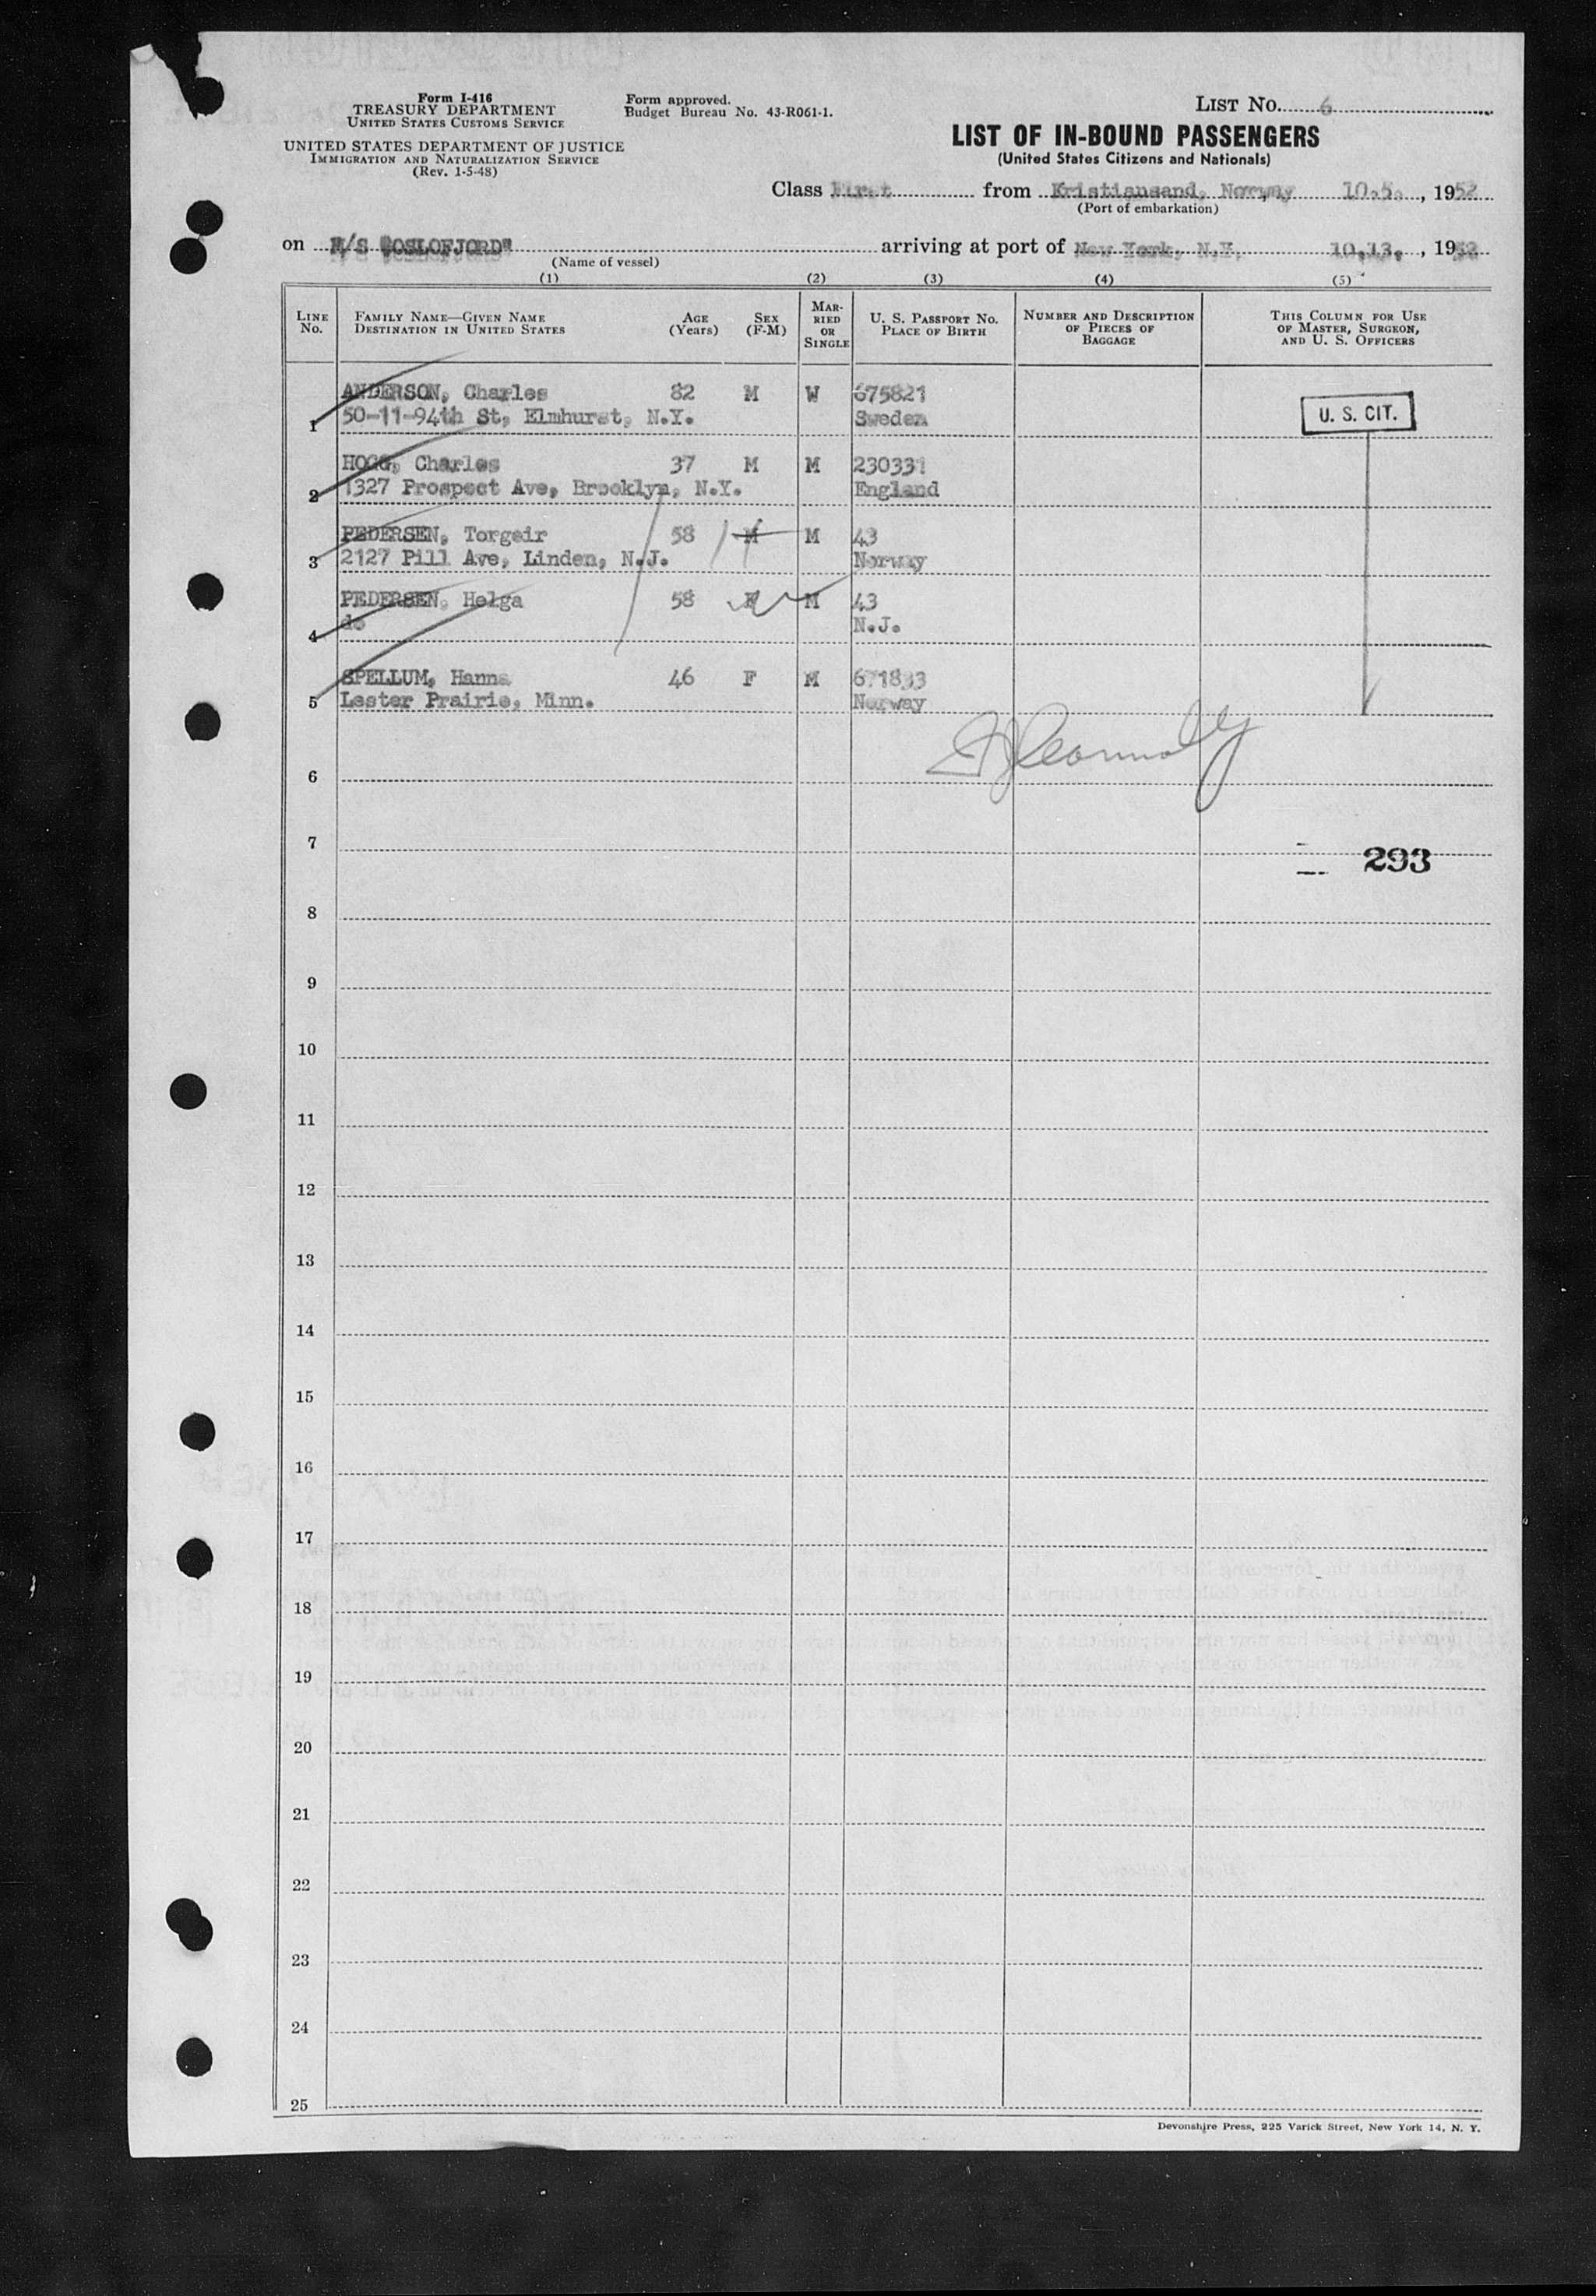 Form I-416
TREASURY DEPARTMENT
UNITED STATES CUSTOMS SERVICE
UNITED STATES DEPARTMENT OF JUSTICE
IMMIGRATION AND NATURALIZATION SERVICE
(Rev. 1-5-48)
Form approved.
Budget Bureau No. 43-R061-1.
LIST No. 6
LIST OF IN-BOUND PASSENGERS
(United States Citizens and Nationals)
Class First from Kristiansand, Norway 10.5. , 1952
(Port of embarkation)
on M/S "OSLOFJORD" arriving at port of New York, N.Y. 10.13. , 1952
(Name of vessel)
(1) (2) (3) (4) (5)
LINE No. FAMILY NAME—GIVEN NAME DESTINATION IN UNITED STATES AGE (Years) SEX (F-M) MARRIED OR SINGLE U. S. PASSPORT No. PLACE OF BIRTH NUMBER AND DESCRIPTION OF PIECES OF BAGGAGE THIS COLUMN FOR USE OF MASTER, SURGEON, AND U. S. OFFICERS
ANDERSON, Charles 82 M W 675821
1 50-11-94th St, Elmhurst, N.Y. Sweden U. S. CIT.
HOGG, Charles 37 M M 230331
2 1327 Prospect Ave, Brooklyn, N.Y. England
PEDERSEN, Torgeir 58 M M 43
3 2127 Pill Ave, Linden, N.J. Norway
PEDERSEN, Helga 58 F M 43
4 do N.J.
SPELLUM, Hanna 46 F M 671833
5 Lester Prairie, Minn. Norway
Connolly
6
7
293
8
9
10
11
12
13
14
15
16
17
18
19
20
21
22
23
24
25
Devonshire Press, 225 Varick Street, New York 14, N. Y.